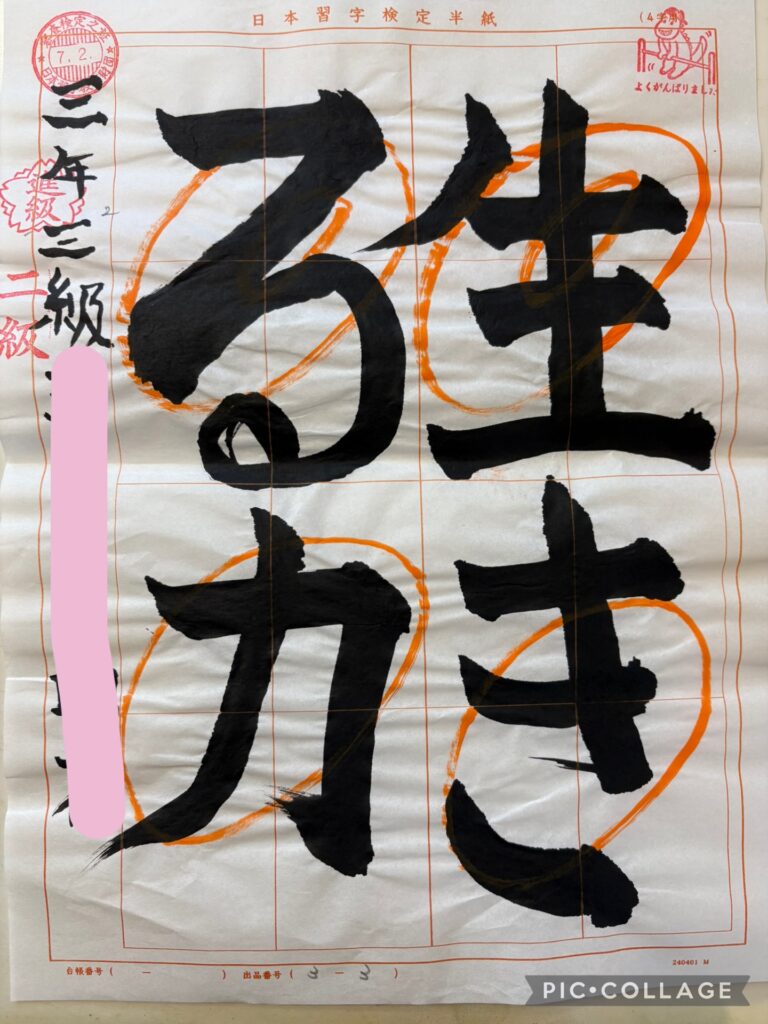 日本習字検定半紙
7.2.
よくがんばりました
生き
る力
三年三級
進級
二級
台帳番号( ー )
出品番号( 3 ー 3 )
240401 M
PIC•COLLAGE